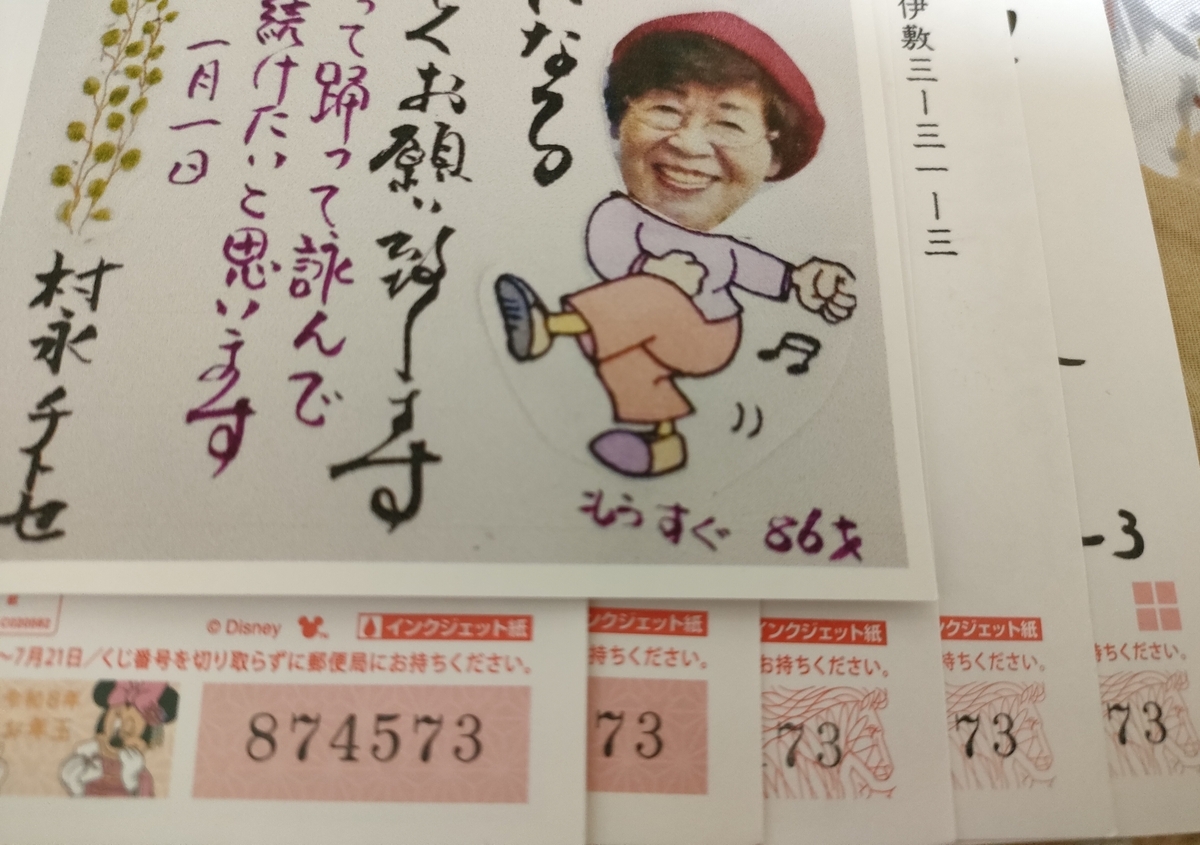 になる
くお願い致します
って踊って詠んで
続けたいと思います
一月一日
村永チトセ
もうすぐ 86才
伊敷三ー三一ー三
-3
© Disney
インクジェット紙
ンクジェット紙
ンクジェット紙
ンクジェット紙
〜7月21日/くじ番号を切り取らずに郵便局にお持ちください。
持ちください。
お持ちください。
持ちください。
持ちください。
令和8年
お年玉
874573
73
73
73
73